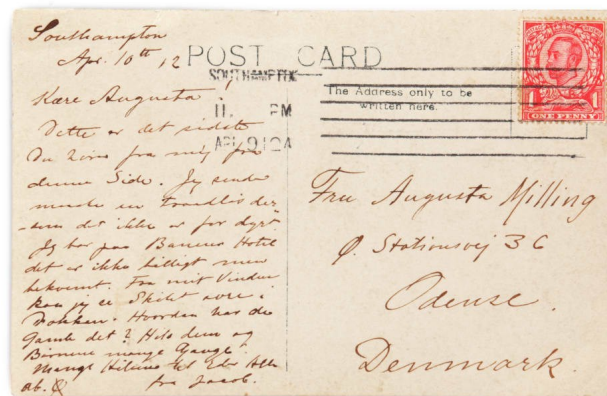 Southampton
Apr. 10th 12
POST CARD
SOUTHAMPTON
11. PM
AP 9 12 A
The Address only to be
written here.
ONE PENNY
Kære Augusta
Dette er det sidste
Du hører fra mig fra
denne Side. Jeg sender
maaske en Traadløs der-
som det ikke er for dyrt
Jeg bor paa Hotel
det er ikke billigt men
bekvemt. Fra mit Vindue
kan jeg se Skibet i
Dokken. Hvordan har de
Gamle det? Hils dem og
Børnene mange Gange.
Mange Hilsner til Eder Alle
fra Jacob.
Fru Augusta Milling
Ø. Stationsvej 36
Odense.
Denmark.